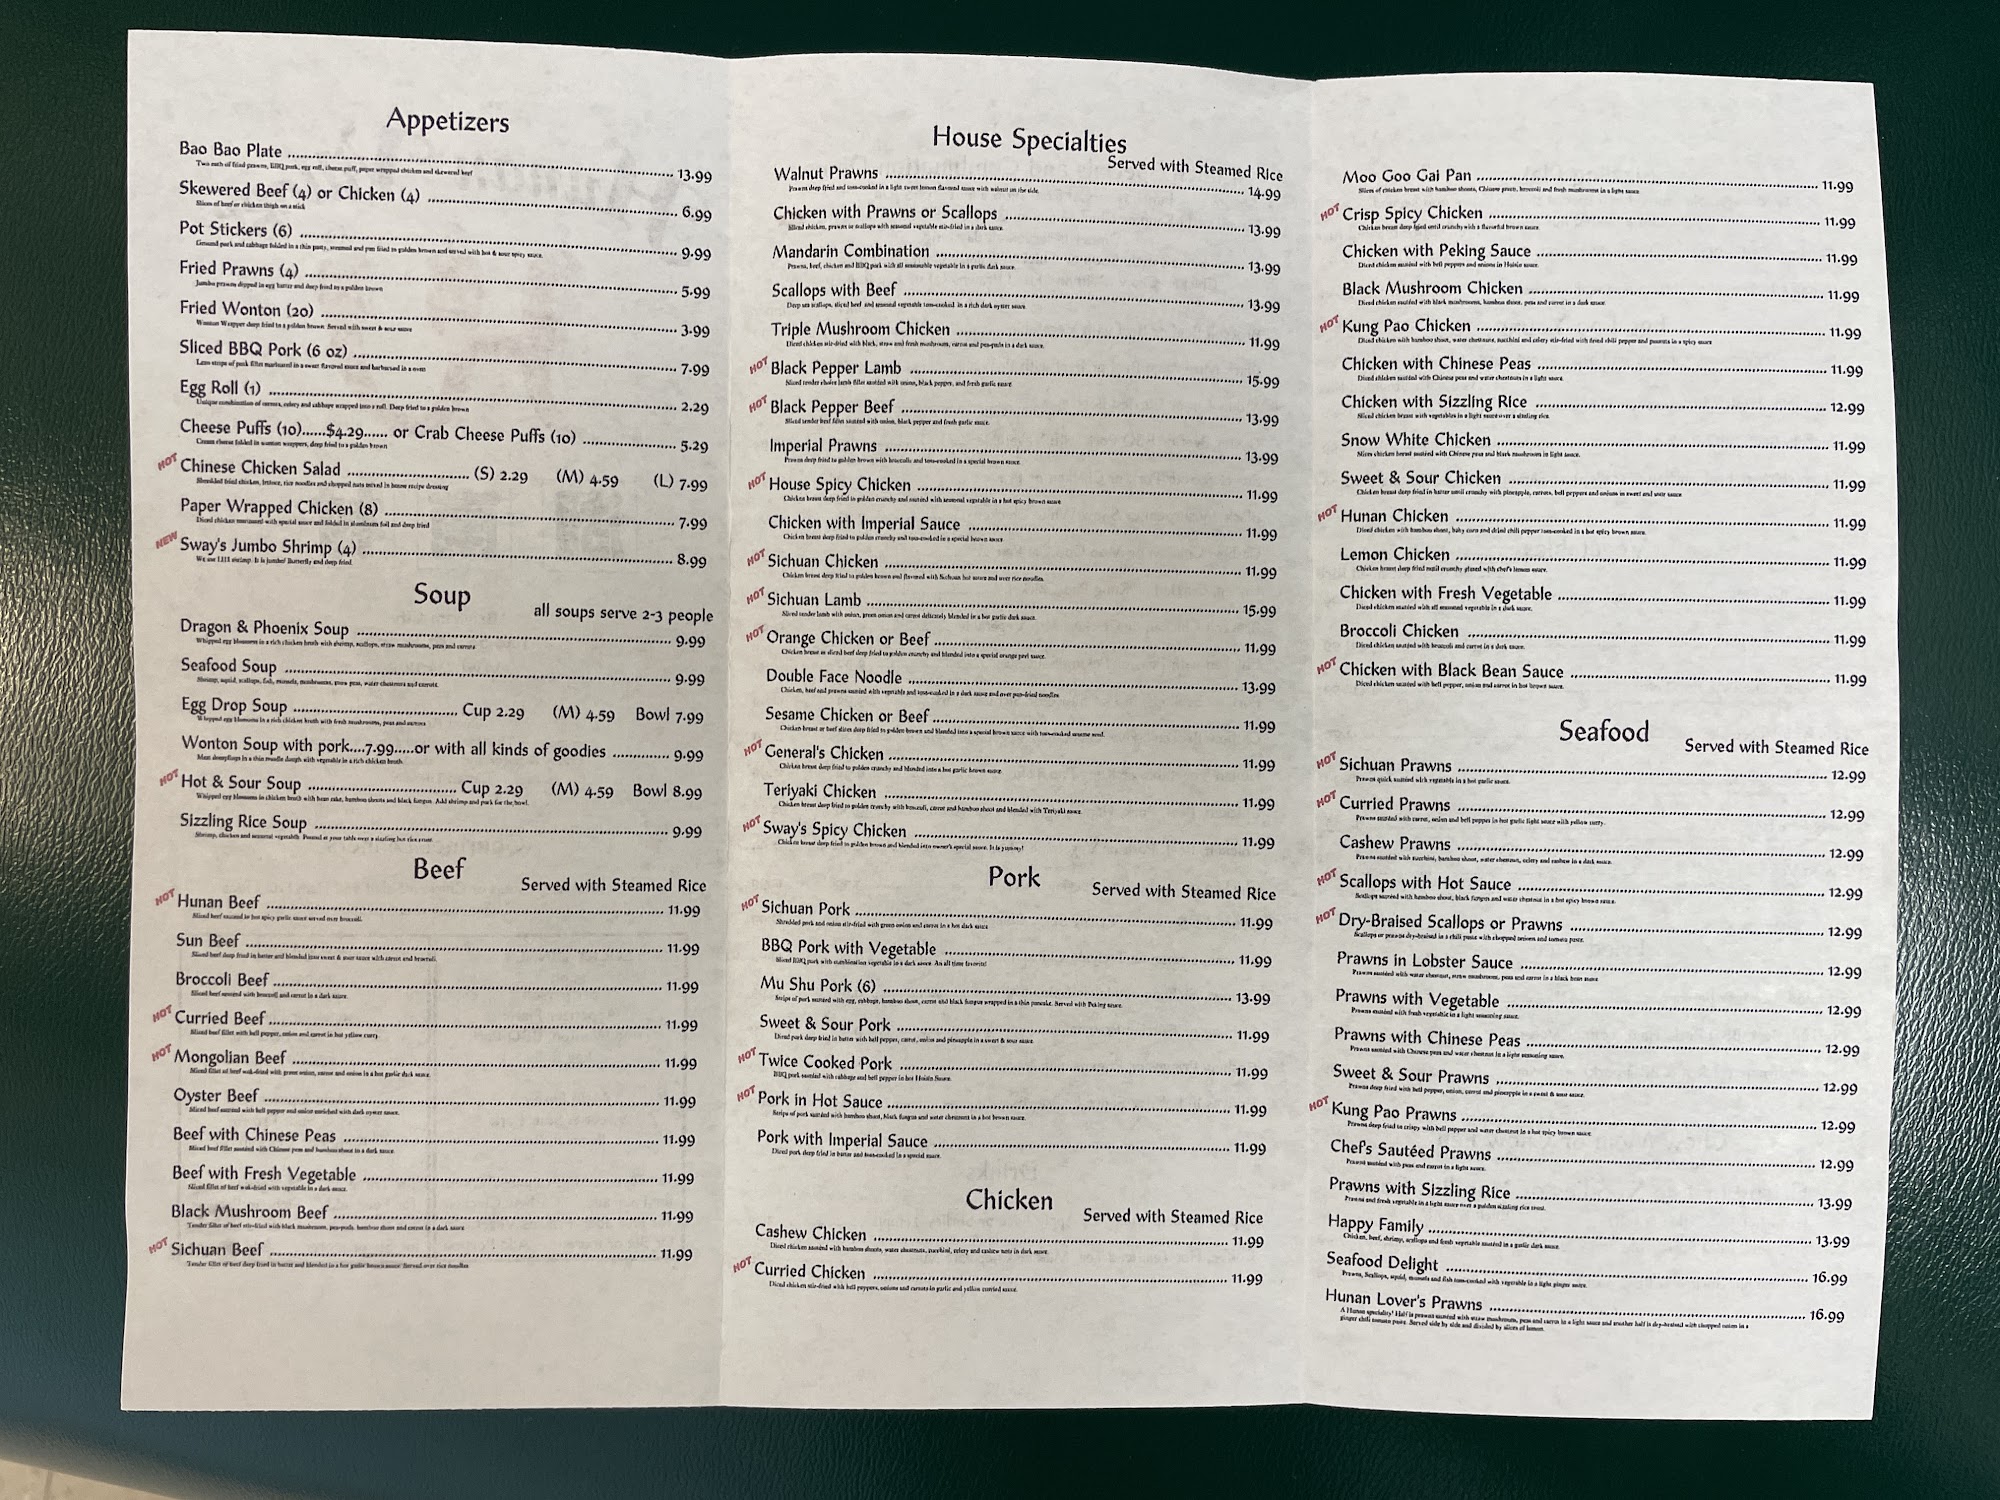 Appetizers
Bao Bao Plate 13.99
Two each of fried prawns, BBQ pork, egg roll, cheese puff, paper wrapped chicken and skewered beef
Skewered Beef (4) or Chicken (4) 6.99
Slices of beef or chicken thigh on a stick
Pot Stickers (6) 9.99
Ground pork and cabbage folded in a thin pasty, steamed and pan fried to golden brown and served with hot & sour spicy sauce.
Fried Prawns (4) 5.99
Jumbo prawns dipped in egg batter and deep fried to a golden brown
Fried Wonton (20) 3.99
Wonton Wrapper deep fried to a golden brown. Served with sweet & sour sauce
Sliced BBQ Pork (6 oz) 7.99
Lean strips of pork fillet marinated in a sweet flavored sauce and barbecued in a oven
Egg Roll (1) 2.29
Unique combination of carrots, celery and cabbage wrapped into a roll. Deep fried to a golden brown
Cheese Puffs (10)......$4.29...... or Crab Cheese Puffs (10) 5.29
Cream cheese folded in wonton wrappers, deep fried to a golden brown
HOT Chinese Chicken Salad (S) 2.29 (M) 4.59 (L) 7.99
Shredded fried chicken, lettuce, rice noodles and chopped nuts served in house recipe dressing
Paper Wrapped Chicken (8) 7.99
Diced chicken marinated with special sauce and folded in aluminum foil and deep fried
NEW Sway's Jumbo Shrimp (4) 8.99
It is jumbo! Butterfly and deep fried.
Soup
all soups serve 2-3 people
Dragon & Phoenix Soup 9.99
Whipped egg blossoms in a rich chicken broth with shrimp, scallops, straw mushrooms, peas and carrots
Seafood Soup 9.99
Shrimp, squid, scallops, fish, mussels, mushrooms, snow peas, water chestnuts and carrots.
Egg Drop Soup Cup 2.29 (M) 4.59 Bowl 7.99
Whipped egg blossoms in a rich chicken broth with fresh mushrooms, peas and carrots
Wonton Soup with pork....7.99.....or with all kinds of goodies 9.99
Meat dumplings in a thin noodle dough with vegetable in a rich chicken broth
HOT Hot & Sour Soup Cup 2.29 (M) 4.59 Bowl 8.99
Whipped egg blossoms in chicken broth with bean cake, bamboo shoots and black fungus. Add shrimp and pork for the bowl.
Sizzling Rice Soup 9.99
Shrimp, chicken and seasonal vegetable. Poured at your table over a sizzling hot rice crust.
Beef
Served with Steamed Rice
HOT Hunan Beef 11.99
Sliced beef sauteed in hot spicy garlic sauce served over broccoli.
Sun Beef 11.99
Sliced beef deep fried in batter and blended into sweet & sour sauce with carrot and broccoli.
Broccoli Beef 11.99
Sliced beef sauteed with broccoli and carrot in a dark sauce.
HOT Curried Beef 11.99
Sliced beef fillet with bell pepper, onion and carrot in hot yellow curry.
HOT Mongolian Beef 11.99
Sliced fillet of beef wok-fried with green onion, carrot and onion in a hot garlic dark sauce.
Oyster Beef 11.99
Sliced beef sauteed with bell pepper and onion enriched with dark oyster sauce.
Beef with Chinese Peas 11.99
Sliced beef fillet sauteed with Chinese peas and bamboo shoot in a dark sauce
Beef with Fresh Vegetable 11.99
Sliced fillet of beef wok-fried with vegetable in a dark sauce.
Black Mushroom Beef 11.99
Tender fillet of beef stir-fried with black mushroom, pea-pods, bamboo shoot and carrot in a dark sauce
HOT Sichuan Beef 11.99
Tender fillet of beef deep fried in batter and blended in a hot garlic brown sauce. Served over rice noodles
House Specialties
Served with Steamed Rice
Walnut Prawns 14.99
Prawns deep fried and toss-cooked in a light sweet lemon flavored sauce with walnut on the side.
Chicken with Prawns or Scallops 13.99
Sliced chicken, prawns or scallops with seasonal vegetable stir-fried in a dark sauce.
Mandarin Combination 13.99
Prawns, beef, chicken and BBQ pork with all seasonable vegetable in a garlic dark sauce.
Scallops with Beef 13.99
Deep sea scallops, sliced beef and seasonal vegetable toss-cooked in a rich dark oyster sauce.
Triple Mushroom Chicken 11.99
Sliced chicken stir-fried with black, straw and fresh mushroom, carrot and pea-pods in a dark sauce.
HOT Black Pepper Lamb 15.99
Sliced tender choice lamb fillet sauteed with onion, black pepper, and fresh garlic sauce
HOT Black Pepper Beef 13.99
Sliced tender beef fillet sauteed with onion, black pepper and fresh garlic sauce.
Imperial Prawns 13.99
Prawns deep fried to golden brown with broccoli and toss-cooked in a special brown sauce.
HOT House Spicy Chicken 11.99
Chicken breast deep fried to golden crunchy and sauteed with seasonal vegetable in a hot spicy brown sauce
Chicken with Imperial Sauce 11.99
Chicken breast deep fried to golden crunchy and toss-cooked in a special brown sauce.
HOT Sichuan Chicken 11.99
Chicken breast deep fried to golden brown and flavored with Sichuan hot sauce and over rice noodles.
HOT Sichuan Lamb 15.99
Sliced tender lamb with onion, green onion and carrot delicately blended in a hot garlic dark sauce.
HOT Orange Chicken or Beef 11.99
Chicken breast or sliced beef deep fried to golden crunchy and blended into a special orange peel sauce.
Double Face Noodle 13.99
Chicken, beef and prawns sauteed with vegetable and toss-cooked in a dark sauce and over pan-fried noodles
Sesame Chicken or Beef 11.99
Chicken breast or beef slices deep fried to golden brown and blended into a special brown sauce with toss-cooked sesame seed.
HOT General's Chicken 11.99
Chicken breast deep fried to golden crunchy and blended into a hot garlic brown sauce.
Teriyaki Chicken 11.99
Chicken breast deep fried to golden crunchy with broccoli, carrot and bamboo shoot and blended with Teriyaki sauce.
HOT Sway's Spicy Chicken 11.99
Chicken breast deep fried to golden brown and blended into owner's special sauce. It is yummy!
Pork
Served with Steamed Rice
HOT Sichuan Pork 11.99
Shredded pork and onion stir-fried with green onion and carrot in a hot dark sauce
BBQ Pork with Vegetable 11.99
Sliced BBQ pork with combination vegetable in a dark sauce. An all time favorite!
Mu Shu Pork (6) 13.99
Strips of pork sauteed with egg, cabbage, bamboo shoot, carrot and black fungus wrapped in a thin pancake. Served with Peking sauce.
Sweet & Sour Pork 11.99
Diced pork deep fried in batter with bell pepper, carrot, onion and pineapple in a sweet & sour sauce
HOT Twice Cooked Pork 11.99
BBQ pork sauteed with cabbage and bell pepper in hot Hoisin Sauce.
HOT Pork in Hot Sauce 11.99
Strips of pork sauteed with bamboo shoot, black fungus and water chestnut in a hot brown sauce.
Pork with Imperial Sauce 11.99
Diced pork deep fried in batter and toss-cooked in a special sauce.
Chicken
Served with Steamed Rice
Cashew Chicken 11.99
Diced chicken sauteed with bamboo shoots, water chestnuts, zucchini, celery and cashew nuts in dark sauce.
HOT Curried Chicken 11.99
Diced chicken stir-fried with bell peppers, onions and carrots in garlic and yellow curried sauce.
Moo Goo Gai Pan 11.99
Slices of chicken breast with bamboo shoots, Chinese peas, broccoli and fresh mushrooms in a light sauce
HOT Crisp Spicy Chicken 11.99
Chicken breast deep fried until crunchy with a flavorful brown sauce.
Chicken with Peking Sauce 11.99
Diced chicken sauteed with bell peppers and onions in Hoisin sauce.
Black Mushroom Chicken 11.99
Diced chicken sauteed with black mushrooms, bamboo shoot, peas and carrot in a dark sauce
HOT Kung Pao Chicken 11.99
Diced chicken with bamboo shoot, water chestnuts, zucchini and celery stir-fried with dried chili pepper and peanuts in a spicy sauce
Chicken with Chinese Peas 11.99
Diced chicken sauteed with Chinese peas and water chestnuts in a light sauce.
Chicken with Sizzling Rice 12.99
Sliced chicken breast with vegetables in a light sauce over a sizzling rice.
Snow White Chicken 11.99
Slices chicken breast sauteed with Chinese peas and black mushroom in light sauce.
Sweet & Sour Chicken 11.99
Chicken breast deep fried in batter until crunchy with pineapple, carrots, bell peppers and onions in sweet and sour sauce
HOT Hunan Chicken 11.99
Diced chicken with bamboo shoot, baby corn and dried chili pepper toss-cooked in a hot spicy brown sauce.
Lemon Chicken 11.99
Chicken breast deep fried until crunchy glazed with chef's lemon sauce.
Chicken with Fresh Vegetable 11.99
Diced chicken sauteed with all seasoned vegetable in a dark sauce.
Broccoli Chicken 11.99
Diced chicken sauteed with broccoli and carrot in a dark sauce.
HOT Chicken with Black Bean Sauce 11.99
Diced chicken sauteed with bell pepper, onion and carrot in hot brown sauce.
Seafood
Served with Steamed Rice
HOT Sichuan Prawns 12.99
Prawns quick sauteed with vegetable in a hot garlic sauce.
HOT Curried Prawns 12.99
Prawns sauteed with carrot, onion and bell pepper in hot garlic light sauce with yellow curry.
Cashew Prawns 12.99
Prawns sauteed with zucchini, bamboo shoot, water chestnut, celery and cashew in a dark sauce.
HOT Scallops with Hot Sauce 12.99
Scallops sauteed with bamboo shoot, black fungus and water chestnut in a hot spicy brown sauce.
HOT Dry-Braised Scallops or Prawns 12.99
Scallops or prawns dry-braised in a chili paste with chopped onions and tomato paste.
Prawns in Lobster Sauce 12.99
Prawns sauteed with water chestnut, straw mushroom, peas and carrot in a black bean sauce
Prawns with Vegetable 12.99
Prawns sauteed with fresh vegetable in a light seasoning sauce.
Prawns with Chinese Peas 12.99
Prawns sauteed with Chinese peas and water chestnut in a light seasoning sauce.
Sweet & Sour Prawns 12.99
Prawns deep fried with bell pepper, onion, carrot and pineapple in a sweet & sour sauce
HOT Kung Pao Prawns 12.99
Prawns deep fried to crispy with bell pepper and water chestnut in a hot spicy brown sauce
Chef's Sautéed Prawns 12.99
Prawns sauteed with peas and carrot in a light sauce.
Prawns with Sizzling Rice 13.99
Prawns and fresh vegetable in a light sauce over a golden sizzling rice crust.
Happy Family 13.99
Chicken, beef, shrimp, scallops and fresh vegetable sauteed in a garlic dark sauce.
Seafood Delight 16.99
Prawns, Scallops, squid, mussels and fish toss-cooked with vegetable in a light ginger sauce.
Hunan Lover's Prawns 16.99
A Hunan speciality! Half is prawns sauteed with straw mushroom, peas and carrot in a light sauce and another half is dry-braised with chopped onion in a
ginger chili tomato paste. Served side by side and divided by slices of lemon.